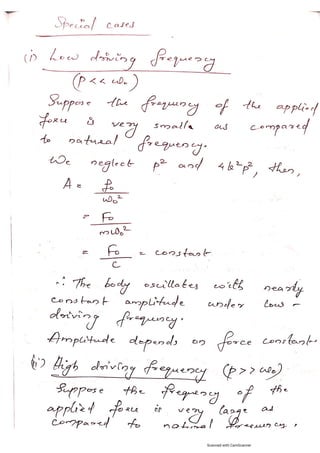 Special cases
(i) Low driving frequency
(P << ω₀)
Suppose the frequency of the applied
force is very smaller as compared
to natural frequency.
We neglect p² and 4k²p², then,
A = f₀/ω₀²
= F₀/mω₀²
= F₀/C = constant
∴ The body oscillates with nearly
constant amplitude under low-
driving frequency.
Amplitude depends on force constant.
(ii) High driving frequency (p >> ω₀)
Suppose the frequency of the
applied force is very large as
compared to natural frequency.
Scanned with CamScanner